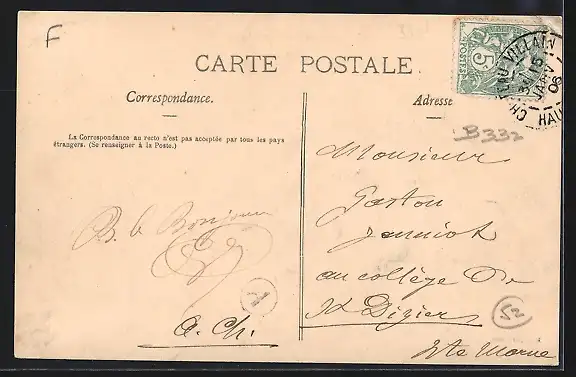 F
CARTE POSTALE
Correspondance.
Adresse
La Correspondance au recto n'est pas acceptée par tous les pays
étrangers. (Se renseigner à la Poste.)
B332
POSTES
5
CHATEAU-VILLAIN
JANV
06
HAU
Monsieur
Gaston
Janniot
au collège de
St Dizier
Hte Marne
B. le Bonjour
A. Ch.
52